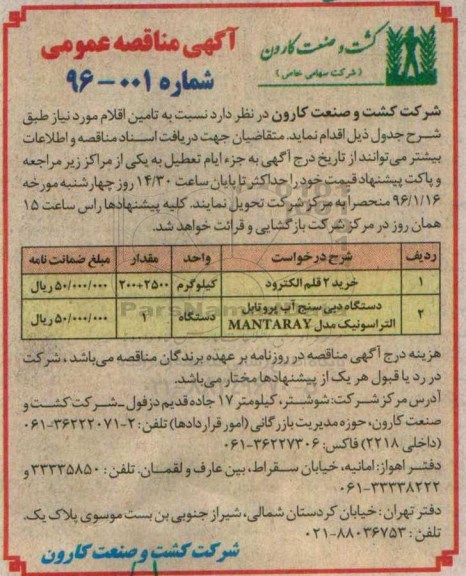 کشت و صنعت کارون
( شرکت سهامی خاص )
آگهی مناقصه عمومی
شماره ۰۰۱-۹۶
شرکت کشت و صنعت کارون در نظر دارد نسبت به تامین اقلام مورد نیاز طبق
شرح جدول ذیل اقدام نماید. متقاضیان جهت دریافت اسناد مناقصه و اطلاعات
بیشتر می‌توانند از تاریخ درج آگهی به جزء ایام تعطیل به یکی از مراکز زیر مراجعه
و پاکت پیشنهاد قیمت خود را حداکثر تا پایان ساعت ۱۴/۳۰ روز چهارشنبه مورخه
۹۶/۱/۱۶ منحصرا به مرکز شرکت تحویل نمایند. کلیه پیشنهادها راس ساعت ۱۵
همان روز در مرکز شرکت بازگشایی و قرائت خواهد شد.
ردیف شرح درخواست واحد مقدار مبلغ ضمانت نامه
۱ خرید ۲ قلم الکترود کیلوگرم ۲۰۰+۲۵۰۰ ۵۰/۰۰۰/۰۰۰ ریال
۲ دستگاه دبی سنج آب پرتابل التراسونیک مدل MANTARAY دستگاه ۱ ۵۰/۰۰۰/۰۰۰ ریال
هزینه درج آگهی مناقصه در روزنامه بر عهده برندگان مناقصه می‌باشد ، شرکت
در رد یا قبول هر یک از پیشنهادها مختار می‌باشد.
آدرس مرکز شرکت: شوشتر، کیلومتر ۱۷ جاده قدیم دزفول ـ شرکت کشت و
صنعت کارون، حوزه مدیریت بازرگانی (امور قراردادها) تلفن: ۲-۳۶۲۲۲۰۷۱-۰۶۱
(داخلی ۲۲۱۸) فاکس: ۳۶۲۲۷۳۰۶-۰۶۱
دفتر اهواز: امانیه، خیابان سقراط، بین عارف و لقمان. تلفن: ۳۳۳۳۵۸۵۰ و
۳۳۳۳۸۲۲۲-۰۶۱
دفتر تهران: خیابان کردستان شمالی، شیراز جنوبی بن بست موسوی پلاک یک.
تلفن: ۸۸۰۳۶۷۵۳-۰۲۱
شرکت کشت و صنعت کارون